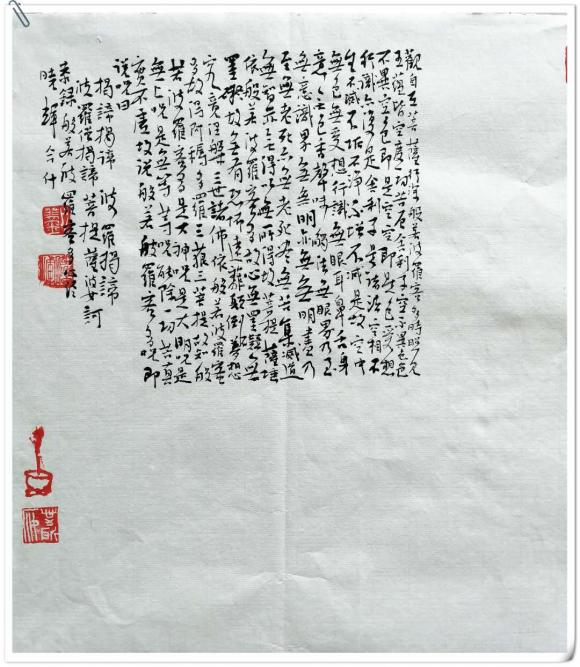 觀自在菩薩行深般若波羅蜜多時照見
五蘊皆空度一切苦厄舍利子空不異色色
不異空色即是空空即是色受想
行識亦復是舍利子是諸法空相不
生不滅不垢不淨不增不減是故空中
無色無受想行識無眼耳鼻舌身
意無色香聲味觸法無眼界乃至
無意識界無無明亦無無明盡乃
至無老死亦無老死盡無苦集滅道
無智亦無得以無所得故菩提薩埵
依般若波羅蜜多故心無罣礙無
罣礙故無有恐怖遠離顛倒夢想
究竟涅槃三世諸佛依般若波羅蜜
多故得阿耨多羅三藐三菩提故知般
若波羅蜜多是大神咒是大明咒是
無上咒是無等等咒能除一切苦真
實不虛故說般若般羅蜜多咒即
說咒曰
揭諦揭諦 波羅揭諦
波羅僧揭諦 菩提薩婆訶
恭錄般若波羅蜜多心經
曉輝合什